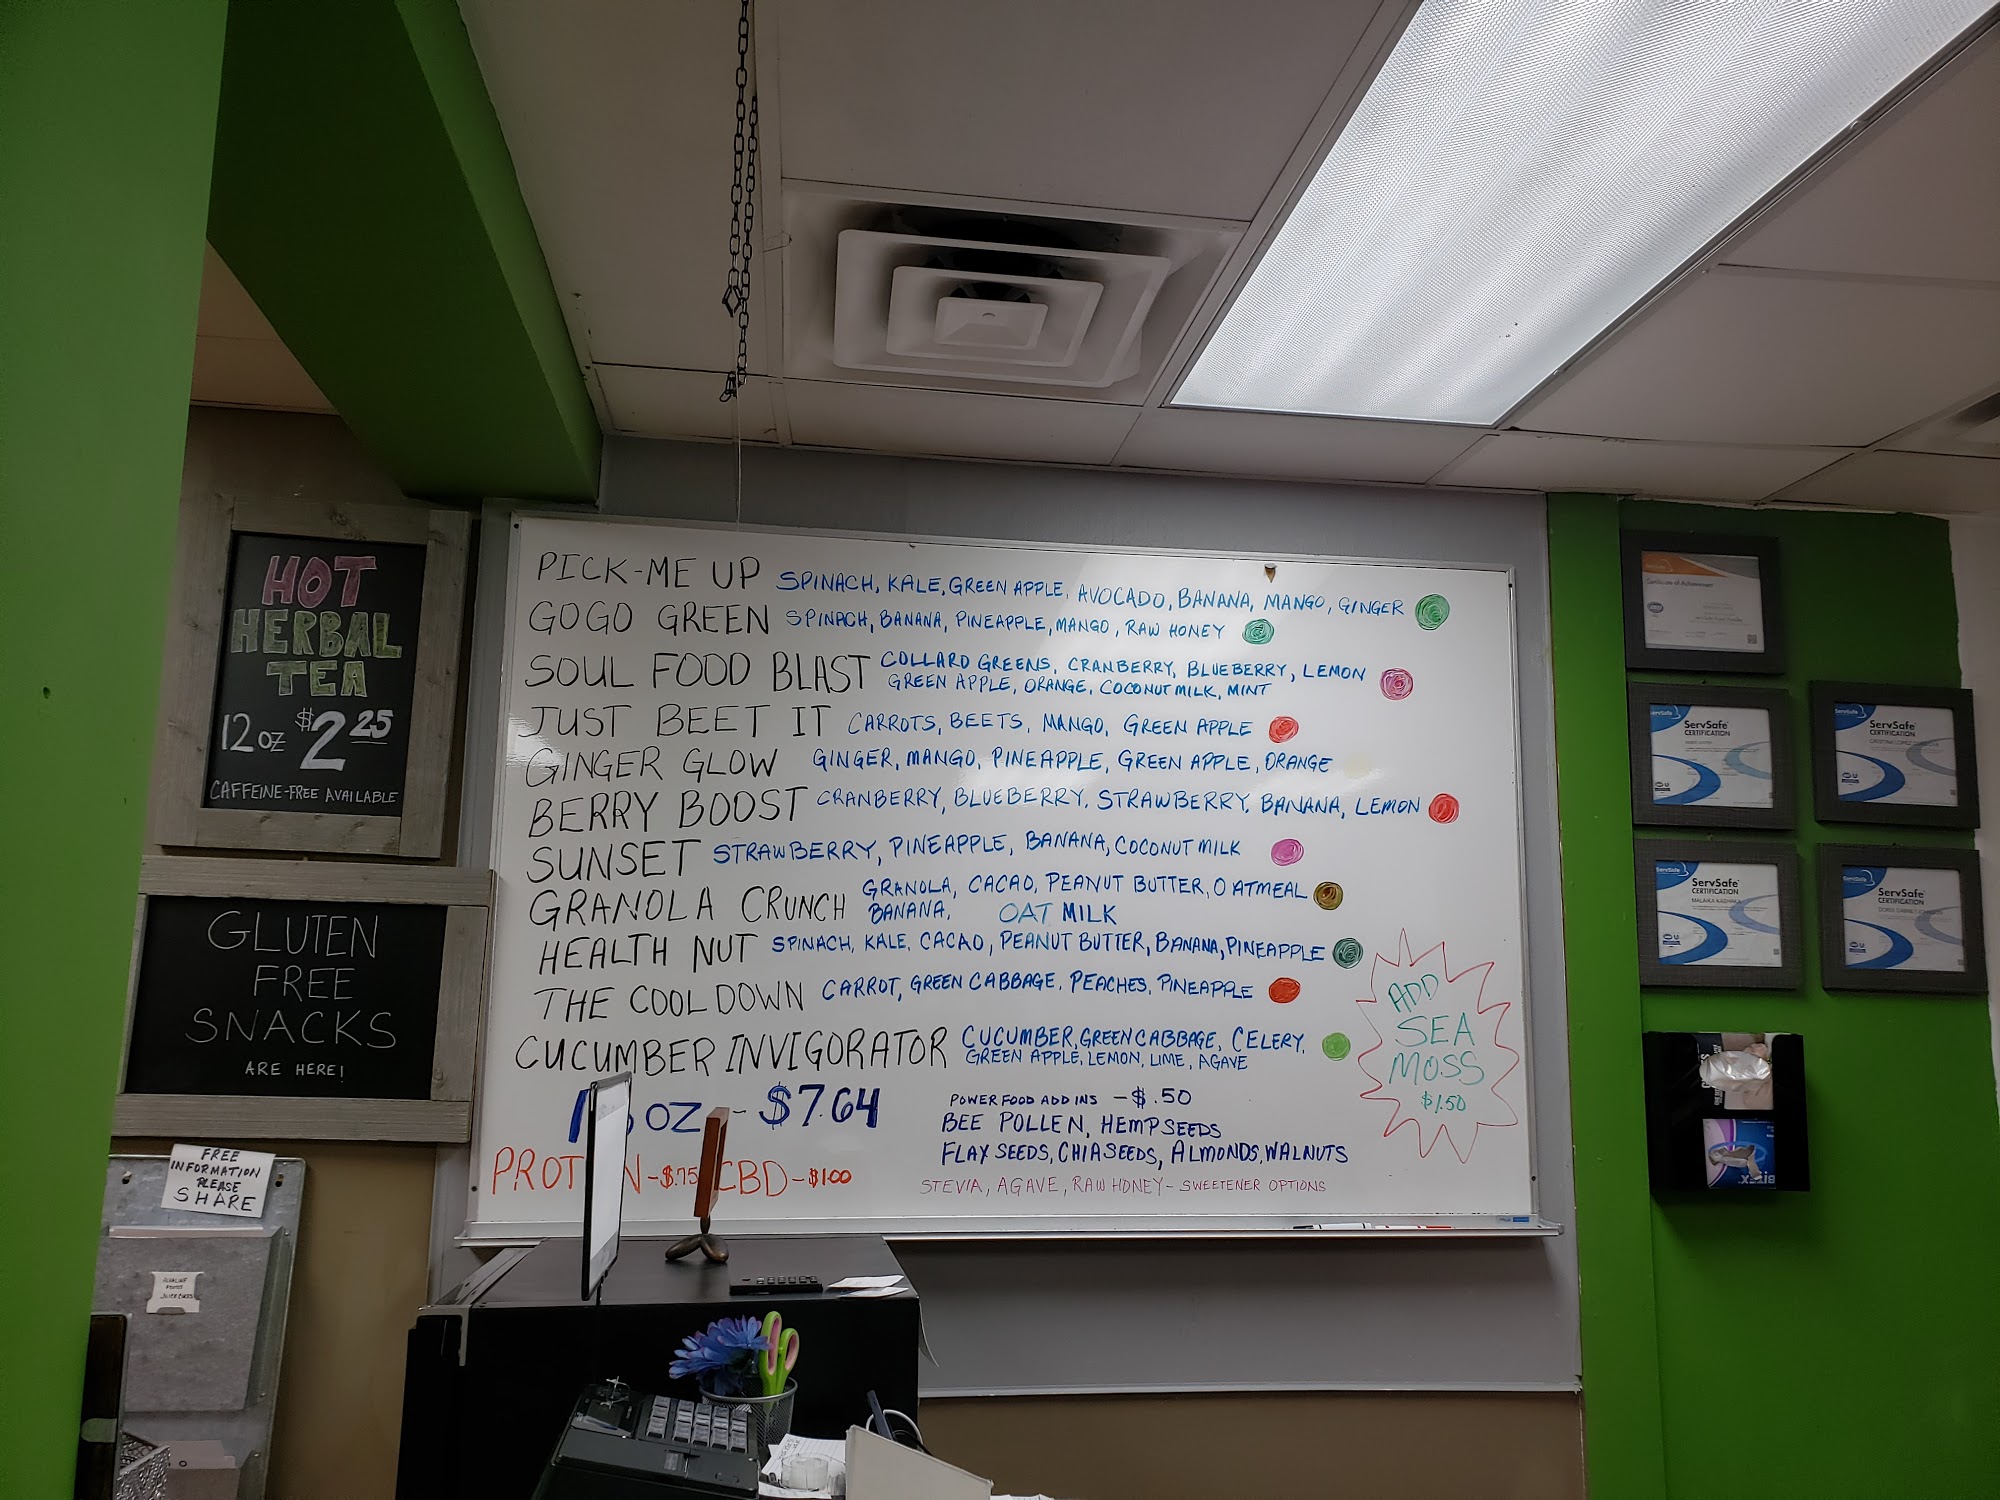 HOT
HERBAL
TEA
12 oz $2 25
CAFFEINE-FREE AVAILABLE
GLUTEN
FREE
SNACKS
ARE HERE!
FREE
INFORMATION
PLEASE
SHARE
PICK-ME UP SPINACH, KALE, GREEN APPLE, AVOCADO, BANANA, MANGO, GINGER
GOGO GREEN SPINACH, BANANA, PINEAPPLE, MANGO, RAW HONEY
SOUL FOOD BLAST COLLARD GREENS, CRANBERRY, BLUEBERRY, LEMON
GREEN APPLE, ORANGE, COCONUT MILK, MINT
JUST BEET IT CARROTS, BEETS, MANGO, GREEN APPLE
GINGER GLOW GINGER, MANGO, PINEAPPLE, GREEN APPLE, ORANGE
BERRY BOOST CRANBERRY, BLUEBERRY, STRAWBERRY, BANANA, LEMON
SUNSET STRAWBERRY, PINEAPPLE, BANANA, COCONUT MILK
GRANOLA CRUNCH GRANOLA, CACAO, PEANUT BUTTER, OATMEAL
BANANA, OAT MILK
HEALTH NUT SPINACH, KALE, CACAO, PEANUT BUTTER, BANANA, PINEAPPLE
THE COOL DOWN CARROT, GREEN CABBAGE, PEACHES, PINEAPPLE
CUCUMBER INVIGORATOR CUCUMBER, GREEN CABBAGE, CELERY,
GREEN APPLE, LEMON, LIME, AGAVE
OZ - $7.64
CBD - $1.00
POWER FOOD ADD INS - $.50
BEE POLLEN, HEMPSEEDS
FLAX SEEDS, CHIA SEEDS, ALMONDS, WALNUTS
STEVIA, AGAVE, RAW HONEY - SWEETENER OPTIONS
ADD
SEA
MOSS
$1.50
Certificate of Achievement
ServSafe
CERTIFICATION
ServSafe
CERTIFICATION
ServSafe
CERTIFICATION
MALAIKA KASHAKA
ServSafe
CERTIFICATION